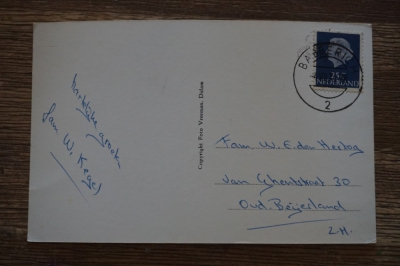 Hartelijke groeten
Fam. W. Kegel
Copyright Foto Veenman, Dalen
25c
NEDERLAND
2
Fam. W. E. den Hertog
van Ghentstraat 30
Oud. Beijerland
Z.H.